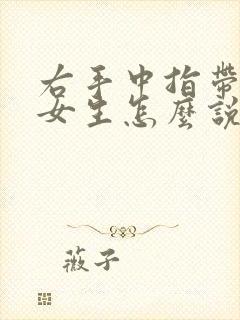 右手中指帶
女生怎麼說
薇子